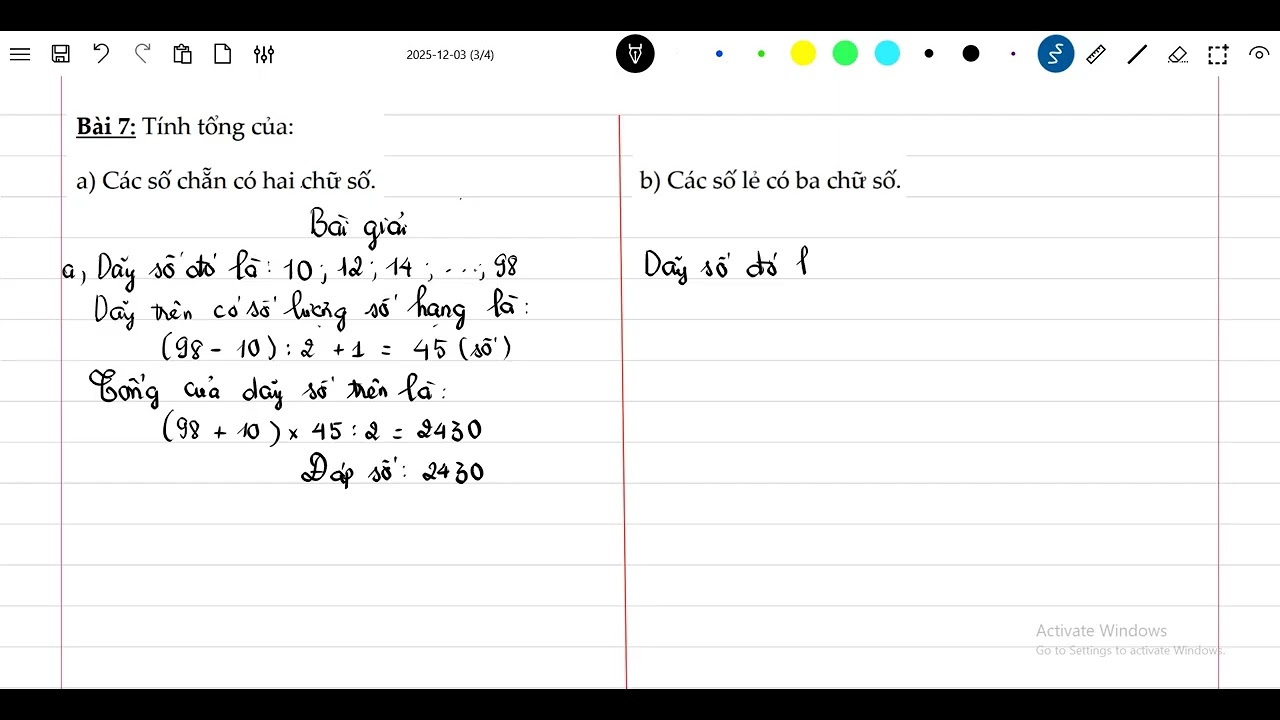 2025-12-03 (3/4)
Bài 7: Tính tổng của:
a) Các số chẵn có hai chữ số.
Bài giải
a, Dãy số đó là: 10; 12; 14; ...; 98
Dãy trên có số lượng số hạng là:
(98 - 10) : 2 + 1 = 45 (số)
Tổng của dãy số trên là:
(98 + 10) x 45 : 2 = 2430
Đáp số: 2430
b) Các số lẻ có ba chữ số.
Dãy số đó l
Activate Windows
Go to Settings to activate Windows.